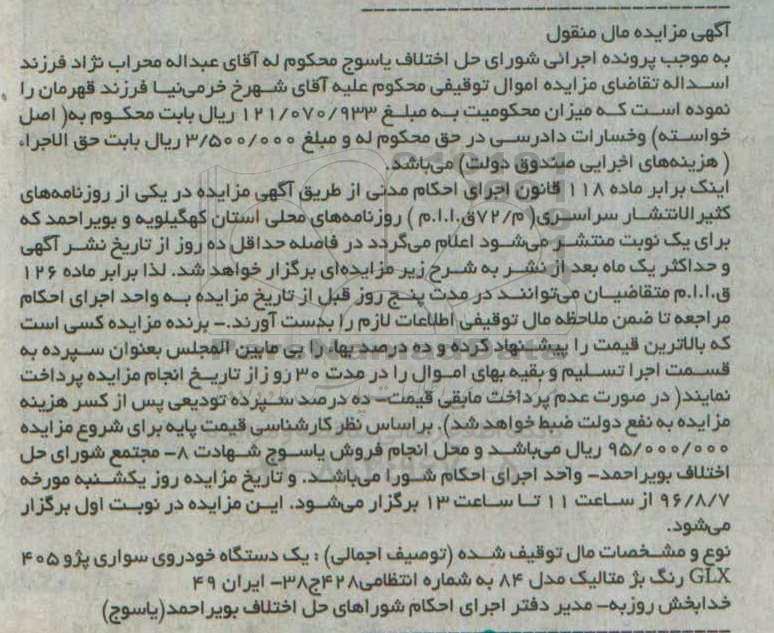 آگهی مزایده مال منقول
به موجب پرونده اجرائی شورای حل اختلاف یاسوج محکوم له آقای عبداله محراب نژاد فرزند
اسداله تقاضای مزایده اموال توقیفی محکوم علیه آقای شهرخ خرمی‌نیا فرزند قهرمان را
نموده است که میزان محکومیت به مبلغ ۱۲۱/۰۷۰/۹۳۳ ریال بابت محکوم به( اصل
خواسته) وخسارات دادرسی در حق محکوم له و مبلغ ۳/۵۰۰/۰۰۰ ریال بابت حق الاجراء
( هزینه‌های اجرایی صندوق دولت) می‌باشد.
اینک برابر ماده ۱۱۸ قانون اجرای احکام مدنی از طریق آگهی مزایده در یکی از روزنامه‌های
کثیرالانتشار سراسری( م/۷۲ق.ا.ا.م ) روزنامه‌های محلی استان کهگیلویه و بویراحمد که
برای یک نوبت منتشر می‌شود اعلام می‌گردد در فاصله حداقل ده روز از تاریخ نشر آگهی
و حداکثر یک ماه بعد از نشر به شرح زیر مزایده‌ای برگزار خواهد شد. لذا برابر ماده ۱۲۶
ق.ا.ا.م متقاضیان می‌توانند در مدت پنج روز قبل از تاریخ مزایده به واحد اجرای احکام
مراجعه تا ضمن ملاحظه مال توقیفی اطلاعات لازم را بدست آورند.- برنده مزایده کسی است
که بالاترین قیمت را پیشنهاد کرده و ده درصد بهاء را فی مابین المجلس بعنوان سپرده به
قسمت اجرا تسلیم و بقیه بهای اموال را در مدت ۳۰ روز از تاریخ انجام مزایده پرداخت
نمایند( در صورت عدم پرداخت مابقی قیمت- ده درصد سپرده تودیعی پس از کسر هزینه
مزایده به نفع دولت ضبط خواهد شد). براساس نظر کارشناسی قیمت پایه برای شروع مزایده
۹۵/۰۰۰/۰۰۰ ریال می‌باشد و محل انجام فروش یاسوج شهادت ۸- مجتمع شورای حل
اختلاف بویراحمد- واحد اجرای احکام شورا می‌باشد. و تاریخ مزایده روز یکشنبه مورخه
۹۶/۸/۷ از ساعت ۱۱ تا ساعت ۱۳ برگزار می‌شود. این مزایده در نوبت اول برگزار
می‌شود.
نوع و مشخصات مال توقیف شده (توصیف اجمالی) : یک دستگاه خودروی سواری پژو ۴۰۵
GLX رنگ بژ متالیک مدل ۸۴ به شماره انتظامی۴۲۸ج۳۸- ایران ۴۹
خدابخش روزبه- مدیر دفتر اجرای احکام شوراهای حل اختلاف بویراحمد(یاسوج)